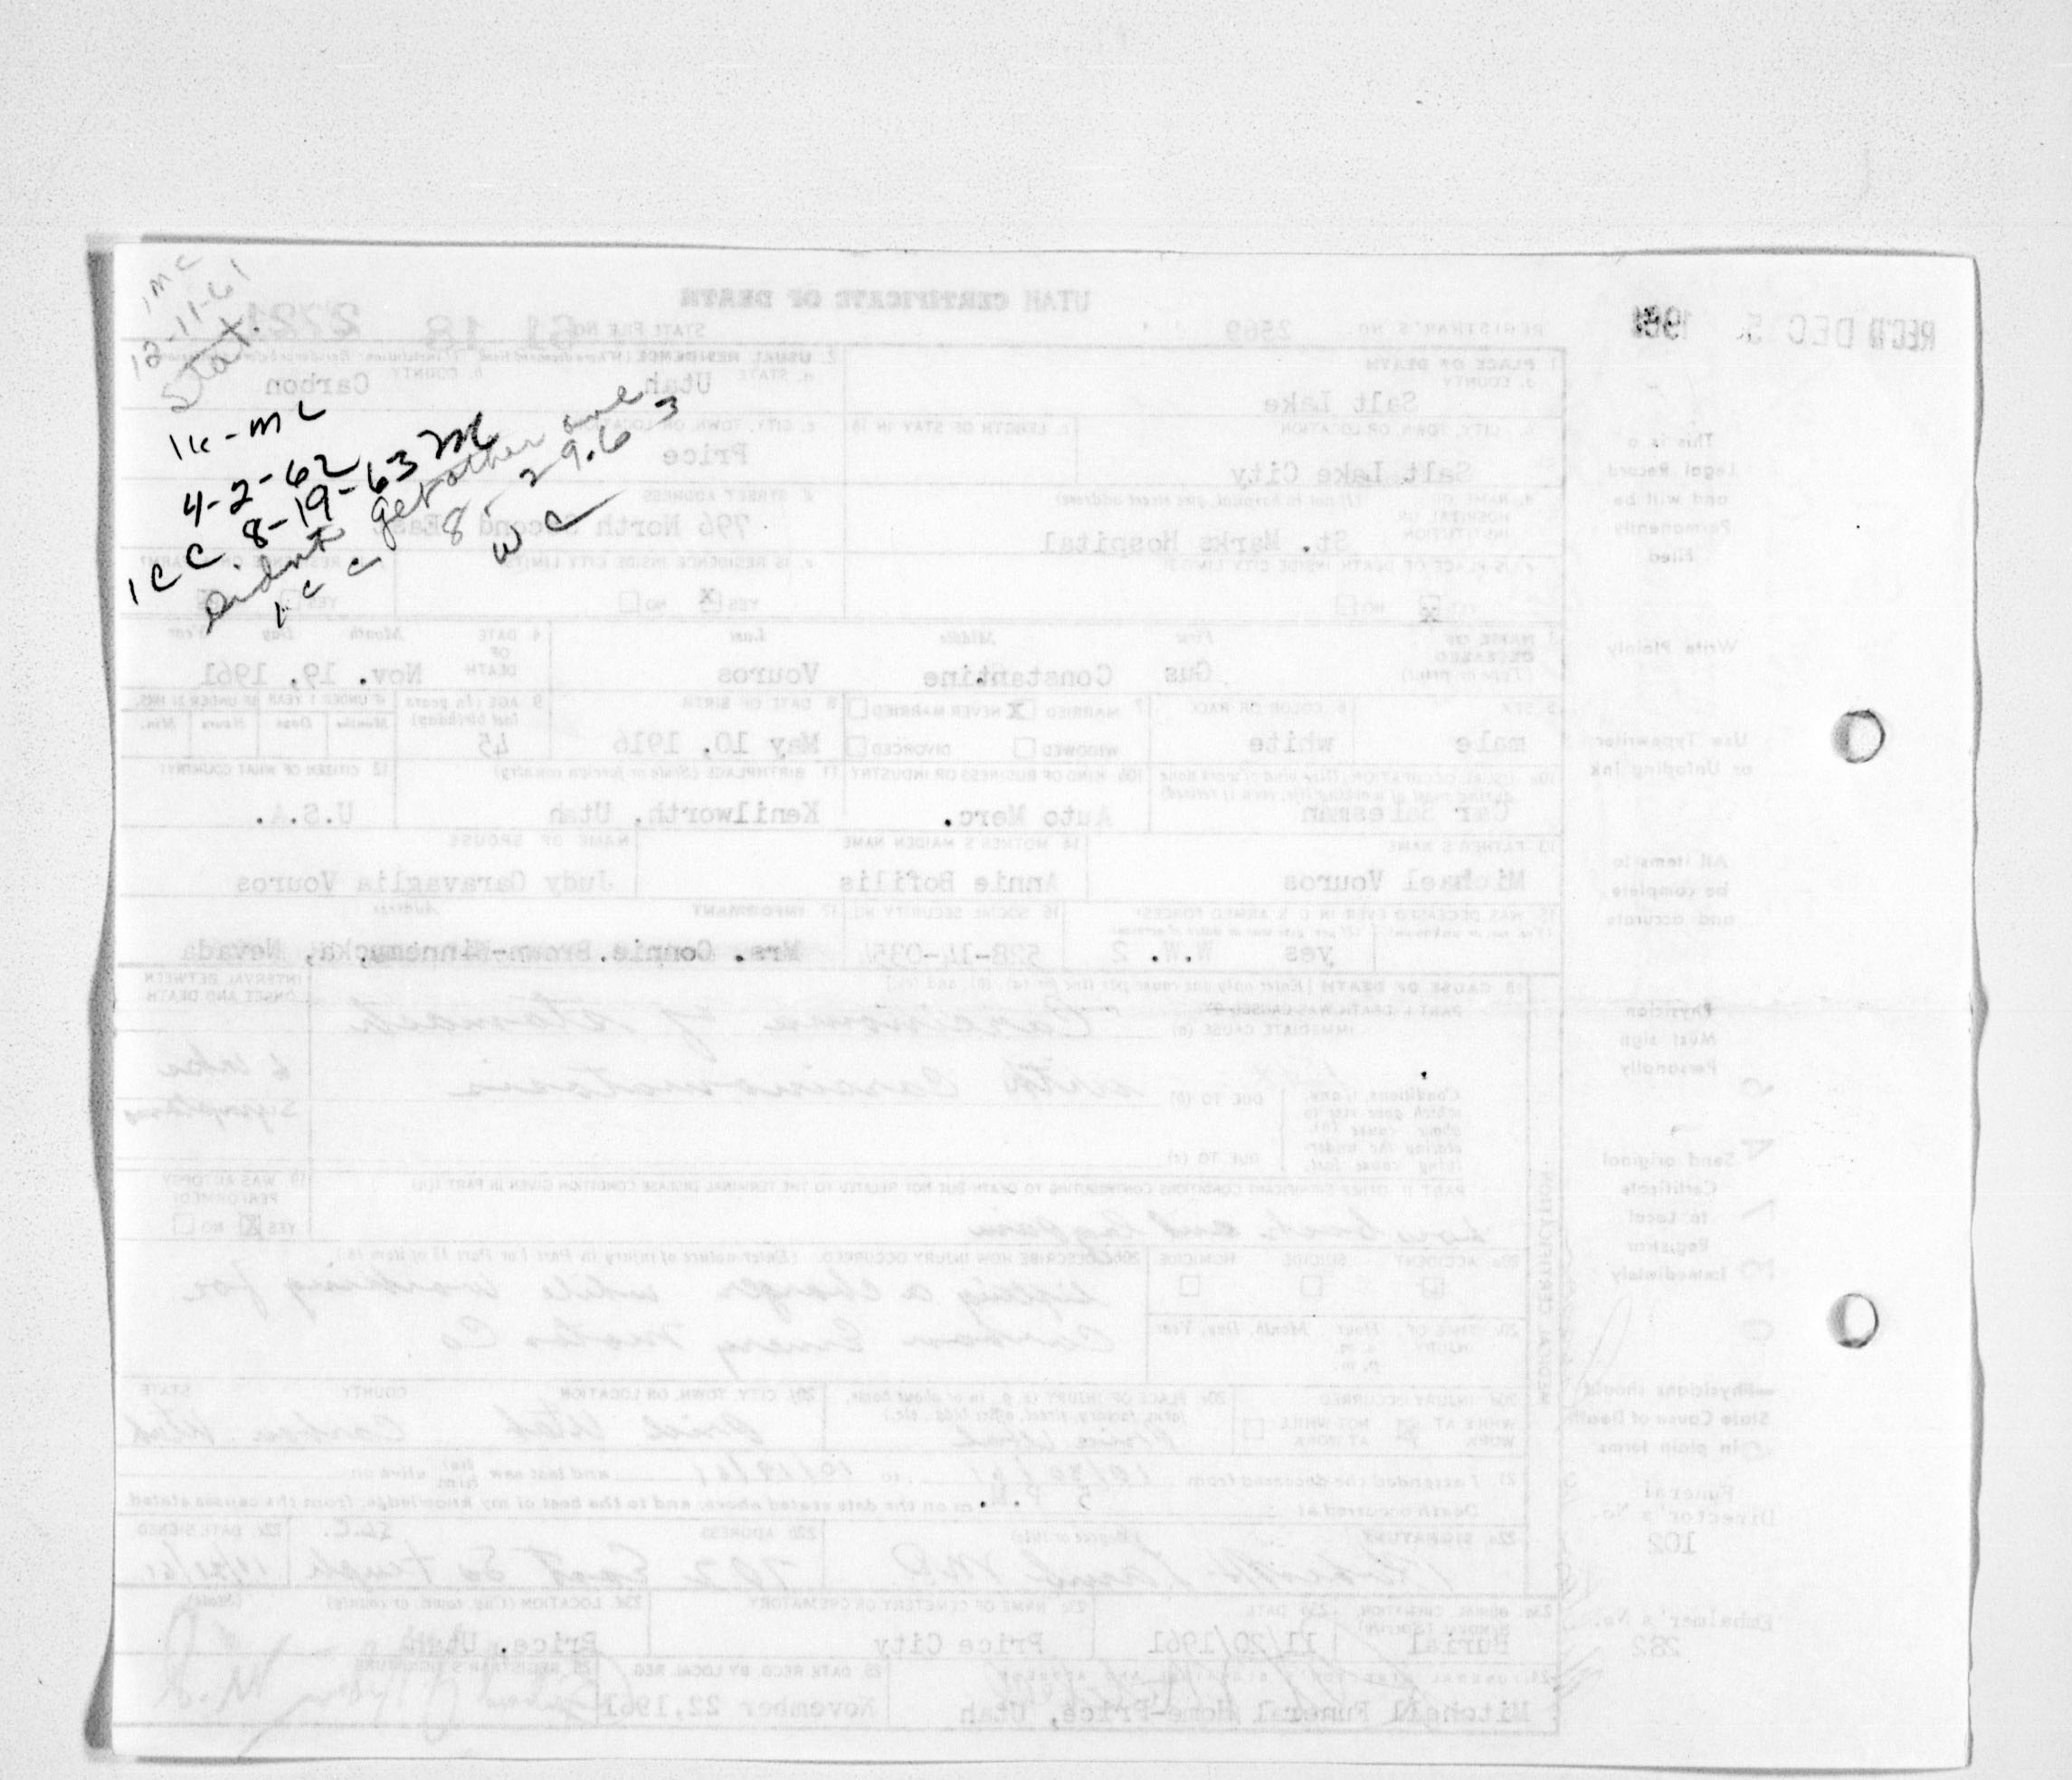 1 mc
12-11-61
Stat.
1 cc - mc
4-2-62
1 CC 8-19-63 mc
didnt get other one
1 c c 8-29.63
w c
REC'D DEC 5 1961
UTAH CERTIFICATE OF DEATH
REGISTRAR'S NO. 2569 STATE FILE NO. 61 18 2721
1 PLACE OF DEATH
a. COUNTY
Salt Lake
2. USUAL RESIDENCE
a. STATE Utah b. COUNTY Carbon
CITY, TOWN, OR LOCATION
Salt Lake City
c. LENGTH OF STAY IN 1b
c. CITY, TOWN, OR LOCATION
Price
d. NAME OF HOSPITAL OR INSTITUTION (If not in hospital, give street address)
St. Marks Hospital
d. STREET ADDRESS
796 North Second East
e. IS PLACE OF DEATH INSIDE CITY LIMITS?
YES NO
e. IS RESIDENCE INSIDE CITY LIMITS?
YES NO
3 NAME OF DECEASED (Type or print)
First Middle Last
Gus Constantine Vouros
4. DATE OF DEATH Month Day Year
Nov. 19, 1961
5 SEX
male
6. COLOR OR RACE
white
7 MARRIED NEVER MARRIED
WIDOWED DIVORCED
8 DATE OF BIRTH
May 10, 1916
9 AGE (In years last birthday)
45
IF UNDER 1 YEAR IF UNDER 24 HRS.
Months Days Hours Min.
10a USUAL OCCUPATION (Give kind of work done during most of working life, even if retired)
Car Salesman
10b KIND OF BUSINESS OR INDUSTRY
Auto Merc.
11 BIRTHPLACE (State or foreign country)
Kenilworth, Utah
12 CITIZEN OF WHAT COUNTRY?
U.S.A.
13 FATHER'S NAME
Michael Vouros
14 MOTHER'S MAIDEN NAME
Annie Bofilis
NAME OF SPOUSE
Judy Caravaglia Vouros
15. WAS DECEASED EVER IN U. S. ARMED FORCES?
yes W.W. 2
16 SOCIAL SECURITY NO.
17 INFORMANT Address
Mrs. Connie Brown-Winnemucka, Nevada
18 CAUSE OF DEATH (Enter only one cause per line for (a), (b), and (c))
PART I DEATH WAS CAUSED BY
IMMEDIATE CAUSE (a) Carcinoma of stomach
with Carcinomatosis
INTERVAL BETWEEN ONSET AND DEATH
6 wks
symptoms
Conditions, if any, which gave rise to above cause (a), stating the underlying cause last.
DUE TO (b)
DUE TO (c)
PART II OTHER SIGNIFICANT CONDITIONS CONTRIBUTING TO DEATH BUT NOT RELATED TO THE TERMINAL DISEASE CONDITION GIVEN IN PART I(a)
Low back and leg pain
19 WAS AUTOPSY PERFORMED?
YES NO
20a ACCIDENT SUICIDE HOMICIDE
20b DESCRIBE HOW INJURY OCCURRED. (Enter nature of injury in Part I or Part II of item 18.)
lifting a charger while working for
Carbon Emery Motor Co
20c TIME OF INJURY Hour Month, Day, Year
a. m.
p. m.
20d INJURY OCCURRED
WHILE AT WORK NOT WHILE AT WORK
20e PLACE OF INJURY (e. g., in or about home, farm, factory, street, office bldg., etc.)
Price Utah
20f CITY, TOWN, OR LOCATION COUNTY STATE
Price Utah Carbon Utah
21 I attended the deceased from to and last saw alive on
Death occurred at 5 P.M. on the date stated above, and to the best of my knowledge, from the causes stated.
22a SIGNATURE (Degree or title)
22b ADDRESS
702 East So Temple S.L.C.
22c. DATE SIGNED
23a. BURIAL, CREMATION, REMOVAL (Specify)
Burial
23b DATE
11/20/1961
23c NAME OF CEMETERY OR CREMATORY
Price City
23d. LOCATION (City, town, or county) (State)
Price, Utah
24. FUNERAL DIRECTOR'S SIGNATURE AND ADDRESS
Mitchell Funeral Home-Price, Utah
25 DATE RECD. BY LOCAL REG.
November 22, 1961
26. REGISTRAR'S SIGNATURE
MEDICAL CERTIFICATION
This is a
Legal Record
and will be
Permanently
Filed
Write Plainly
Use Typewriter
or Unfading Ink
All items to
be complete,
and accurate
Physician
Must sign
Personally
Send original
Certificate
to Local
Registrar
Immediately
Physicians should
State Cause of Death
in plain terms
Funeral
Director's No.
102
Embalmer's No.
282